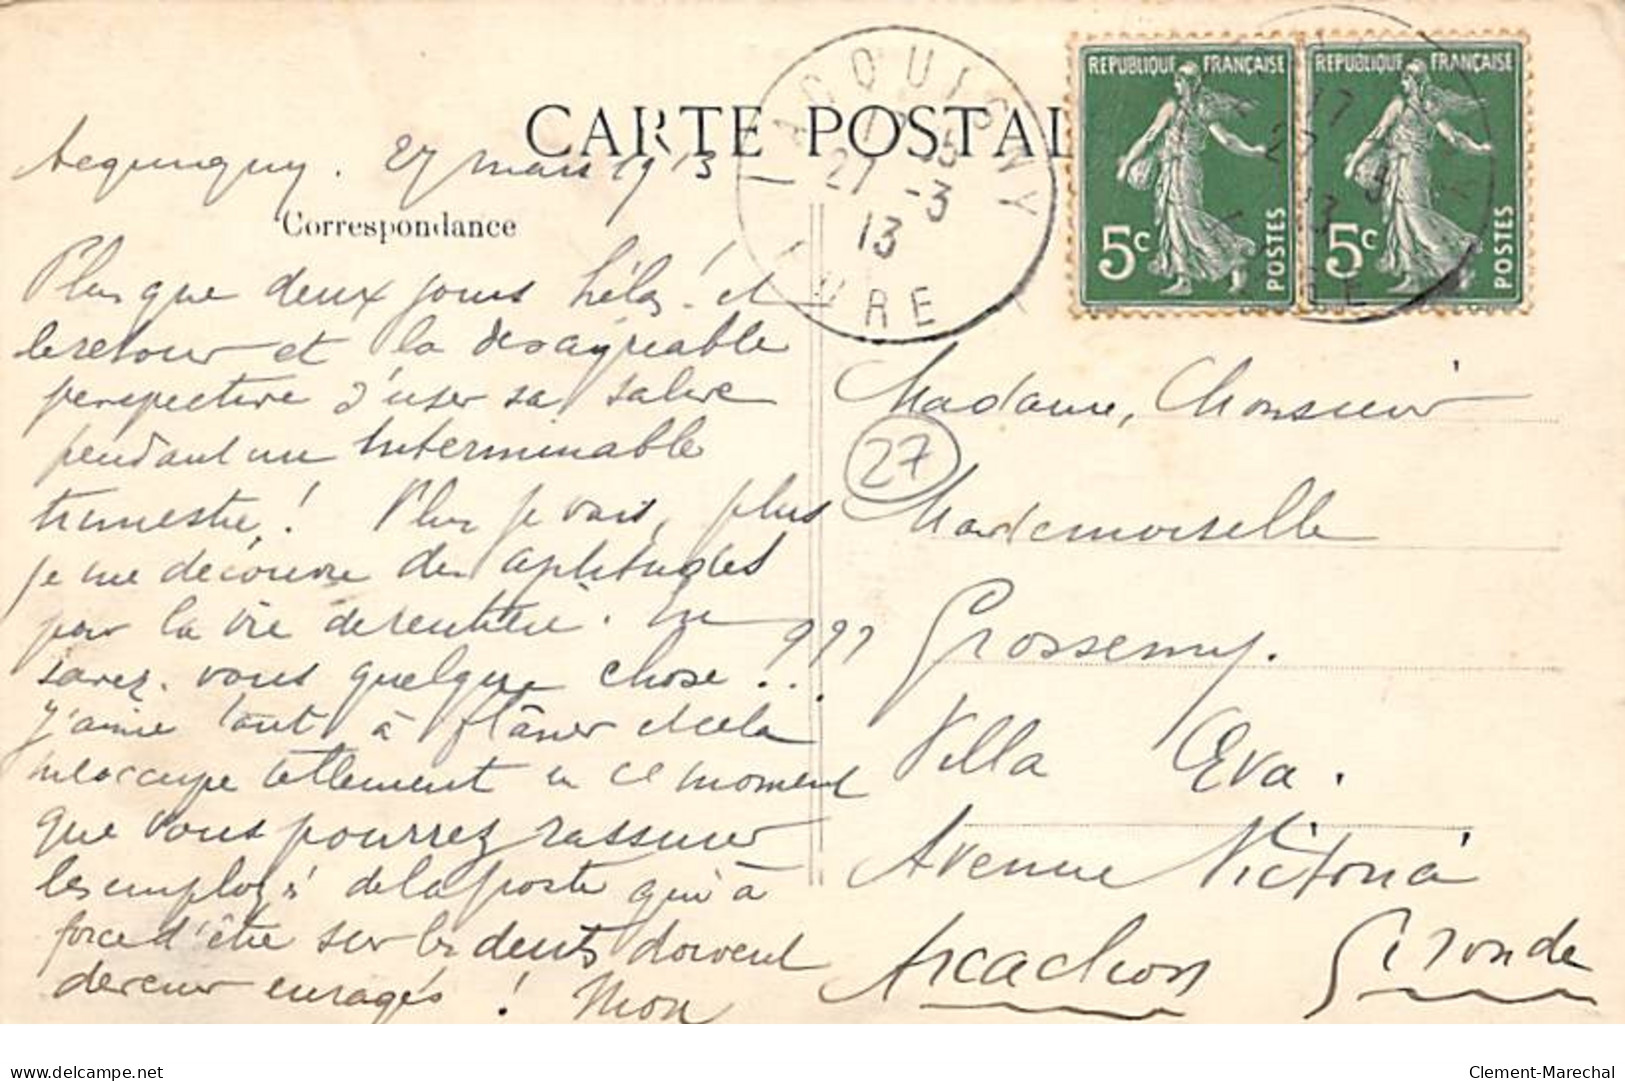 CARTE POSTALE
Acquigny. 27 mars 1913
Correspondance
Plus que deux jours hélas! et
le retour et la désagréable
perspective d'user sa salive
pendant un interminable
trimestre! Plus je vais, plus
je me découvre des aptitudes
pour la vie de rentière. En
savez-vous quelque chose???
J'aime tant à flâner et cela
m'occupe tellement en ce moment
que vous pourrez rassurer
les employés de la poste qui à
force d'être sur les dents doivent
devenir enragés! Mon
ACQUIGNY
27 -3
13
EURE
REPUBLIQUE FRANÇAISE
5c
POSTES
REPUBLIQUE FRANÇAISE
5c
POSTES
Madame, Monsieur
27
Mademoiselle
Grossemy.
Villa Eva.
Avenue Victoria
Arcachon Gironde
www.delcampe.net
Clement-Marechal